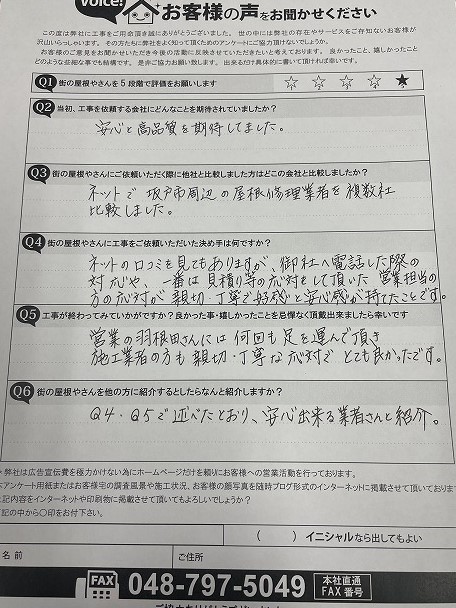 Voice!
お客様の声をお聞かせください
この度は弊社に工事をご用命頂き誠にありがとうございました。 世の中には弊社の存在やサービスをご存知ないお客様が
沢山いらっしゃいます。 その方たちに弊社をよく知って頂くためのアンケートにご協力頂けないでしょうか。
お客様のご意見をお聞かせいただき今後の活動に反映させていただきたいと考えております。 良かったこと、嬉しかったこと
どのような些細な事でも結構です。 是非ご協力お願い致します。 出来るだけ具体的に書いて頂ければ幸いです。
Q1 街の屋根やさんを5段階で評価をお願いします ☆ ☆ ☆ ☆ ★
Q2 当初、工事を依頼する会社にどんなことを期待されていましたか?
安心と高品質を期待してました。
Q3 街の屋根やさんにご依頼いただく際に他社と比較しました方はどこの会社と比較しましたか?
ネットで坂戸市周辺の屋根修理業者を複数社
比較しました。
Q4 街の屋根やさんに工事をご依頼いただいた決め手は何ですか?
ネットの口コミを見てもありますが、御社へ電話した際の
対応や、一番は見積り等の対応をして頂いた営業担当の
方の応対が親切・丁寧で好感と安心感が持てたことです。
Q5 工事が終わってみていかがですか?良かった事・嬉しかったことを忌憚なく頂戴出来ましたら幸いです
営業の羽根田さんには何回も足を運んで頂き
施工業者の方も親切・丁寧な応対でとても良かったです。
Q6 街の屋根やさんを他の方に紹介するとしたらなんと紹介しますか?
Q4・Q5で述べたとおり、安心出来る業者さんと紹介。
・弊社は広告宣伝費を極力かけない為にホームページだけを頼りにお客様への営業活動を行っております。
アンケート用紙またはお客様宅の調査風景や施工状況、お客様の顔写真を随時ブログ形式のインターネットに掲載させて頂いております
記内容をインターネットや印刷物に掲載させて頂いてもよろしいでしょうか?
下記の中から〇印をお付下さい。
( ) イニシャルなら出してもよい
名前
ご住所
FAX 048-797-5049 本社直通
FAX番号